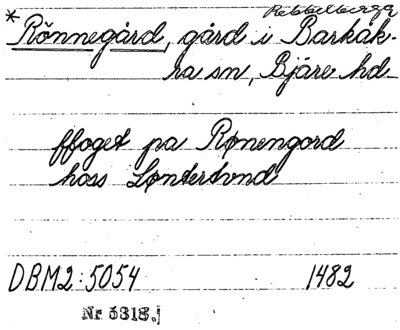 Rebbelberga
* Rönnegård, gård i Barkåk-
ra sn, Bjäre hd
ffoget pa Rønengord
hoss Løntertvnd
DBM2:5054 1482
Nr 5318.